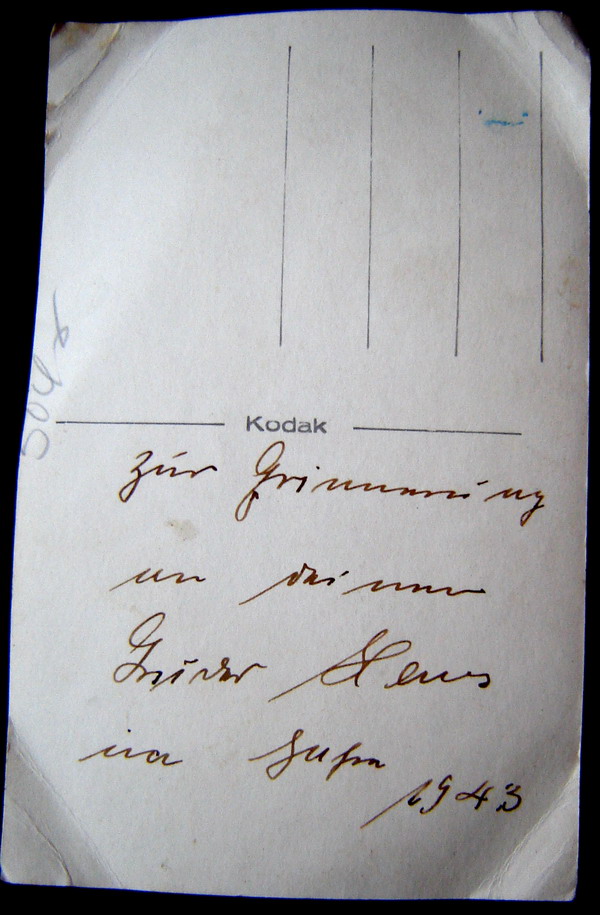 Kodak
Zur Erinnerung
an deinen
Bruder Hans
im Jahre
1943